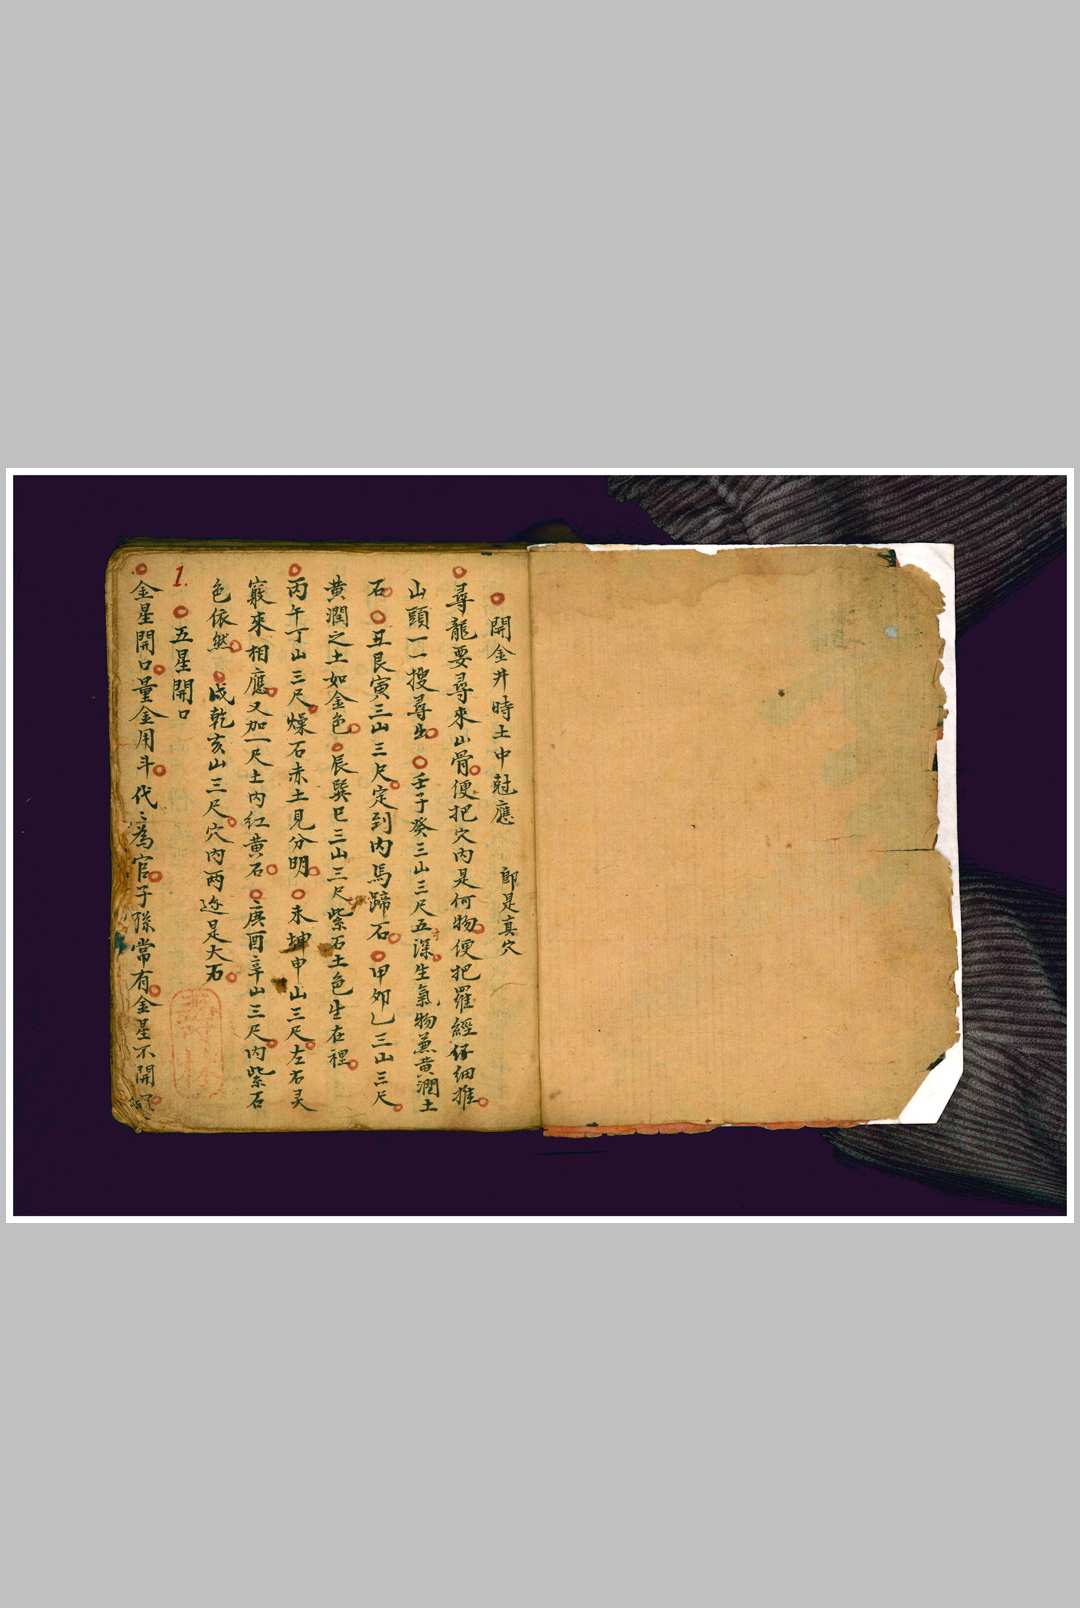 開金井時土中尅應 即是真穴
尋龍要尋來山骨便把穴內是何物便把羅經仔細推
山頭一一搜尋出壬子癸三山三尺五深生氣物兼黄潤土
石丑艮寅三山三尺定到內馬蹄石甲卯乙三山三尺
黄潤之土如金色辰巽巳三山三尺紫石土色生在裡
丙午丁山三尺燥石赤土見分明未坤申山三尺左右灵
窮來相應又加一尺土內紅黄石庚酉辛山三尺內紫石
色依然戌乾亥山三尺穴內兩边是大石
1.
五星開口
金星開口量金用斗代〻為官子孫常有金星不開